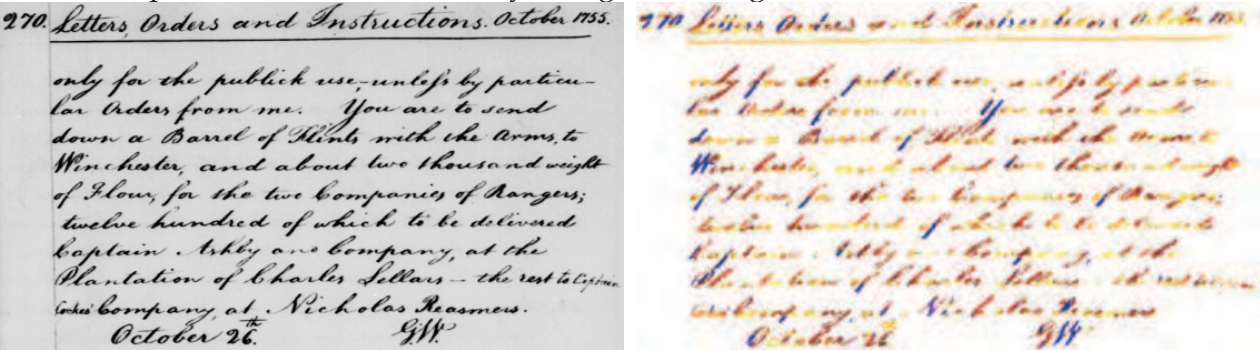 270. Letters, Orders and Instructions. October 1755.
only for the publick use, unless by particu-
lar Orders from me. You are to send
down a Barrel of Flints with the Arms, to
Winchester, and about two thousand weight
of Flour, for the two Companies of Rangers;
twelve hundred of which to be delivered
Captain Ashby and Company, at the
Plantation of Charles Sellars - the rest to Captain
Cockes' Company, at Nicholas Reasmers.
October 26th. G.W.
270 Letters Orders and Instructions October 1755
only for the publick use, unless by particu
lar Orders from me. You are to send
down a Barrel of Flints with the Arms to
Winchester, and about two thousand weight
of Flour, for the two Companies of Rangers;
twelve hundred of which to be delivered
Captain Ashby and Company, at the
Plantation of Charles Sellars the rest
Company, at Nicholas Reasmers
October 26 GW